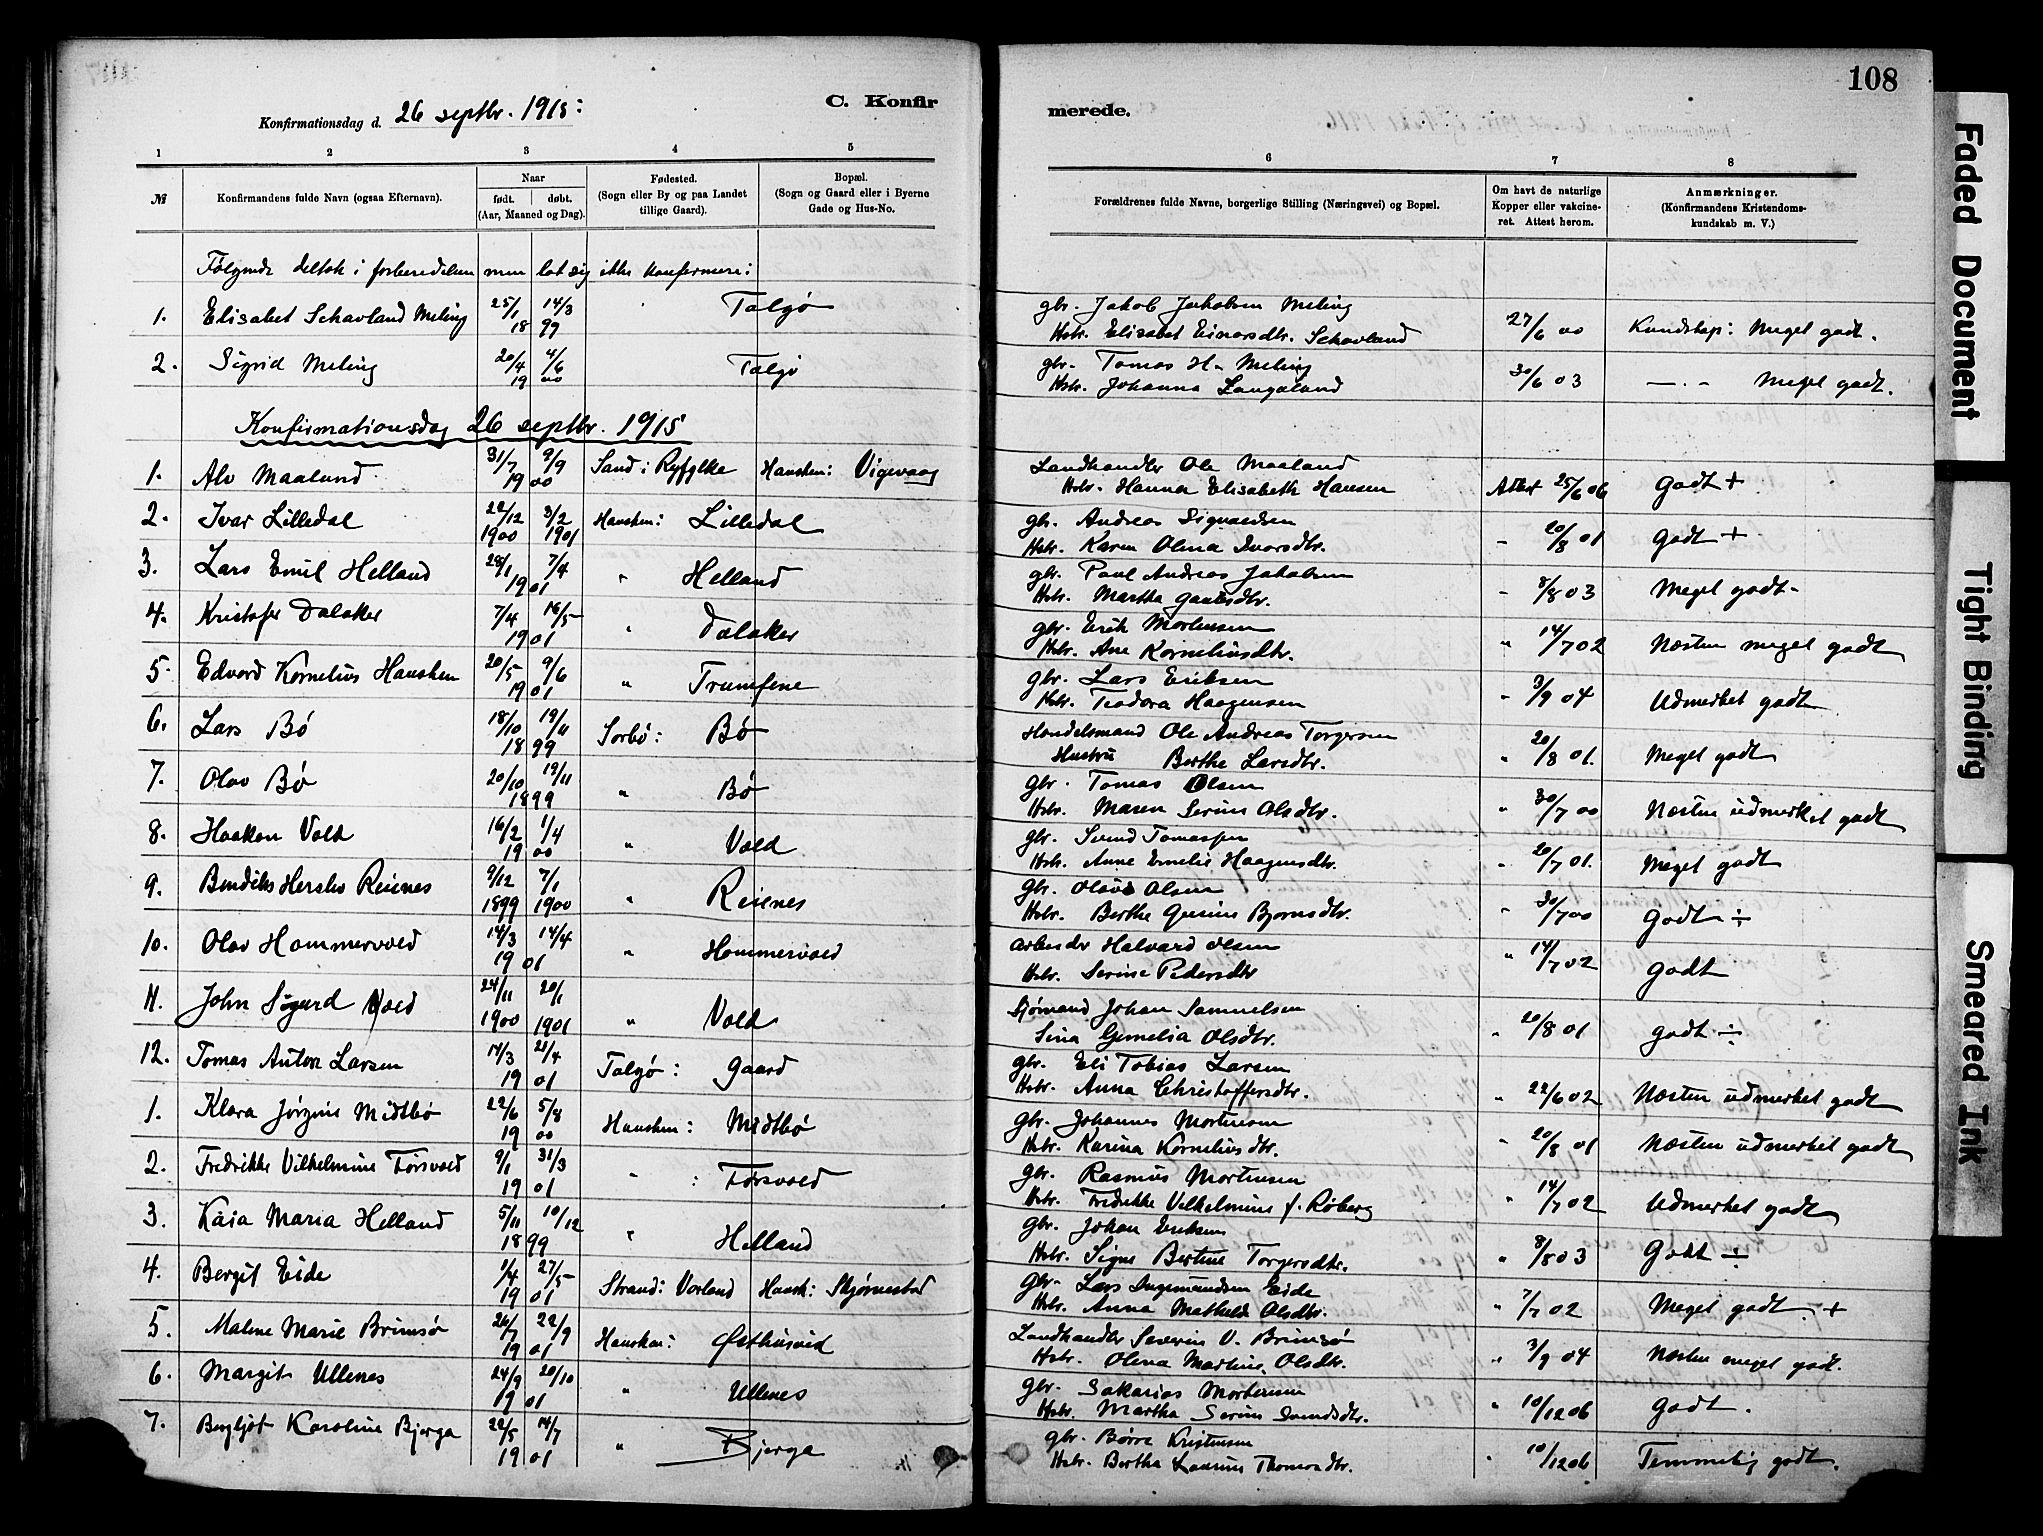 108
Konfirmationsdag d. 26 septbr. 1915:
C. Konfir
merede.
1 2 3 4 5 6 7 8
№ Konfirmandens fulde Navn (ogsaa Efternavn). Naar født. døbt. (Aar, Maaned og Dag). Fødested. (Sogn eller By og paa Landet tillige Gaard). Bopæl. (Sogn og Gaard eller i Byerne Gade og Hus-No. Forældrenes fulde Navne, borgerlige Stilling (Næringsvei) og Bopæl. Om havt de naturlige Kopper eller vakcineret. Attest herom. Anmærkninger. (Konfirmandens Kristendomskundskab m. V.)
Følgende deltok i forberedelsen men lot sig ikke konfirmere:
1. Elisabet Schavland Meling 25/1 14/3 1899 Talgø gbr. Jakob Jakobsen Meling
Hstr. Elisabet Einarsdtr. Schavland 27/6 00 Kundskap: Meget godt.
2. Sigrid Meling 20/4 4/6 1900 Talgø gbr. Tomas H. Meling
Hstr. Johanna Langaland 30/6 03 —"— Meget godt.
Konfirmationsdag 26 septbr. 1915
1. Alv Maaland 31/7 9/9 1900 Sand i Ryfylke Hausken: Vigevaag Landhandler Ole Maaland
Hstr. Hanna Elisabeth Hansen Attest 25/6 06 Godt +
2. Ivar Lilledal 22/12 1900 3/2 1901 Hausken: Lilledal gbr. Andreas Sigvardsen
Hstr. Karen Olina Ivarsdtr. " 20/8 01 Godt +
3. Lars Emil Helland 28/1 7/4 1901 " Helland gbr. Paul Andreas Jakobsen
Hstr. Martha Gautesdtr. " 8/8 03 Meget godt
4. Kristofer Dalaker 7/4 16/5 1901 " Dalaker gbr. Erik Mortensen
Hstr. Ane Korneliusdtr. " 14/7 02 Næsten meget godt
5. Edvard Kornelius Hausken 20/5 9/6 1901 " Trumfene gbr. Lars Eriksen
Hstr. Teodora Haagensen " 3/9 04 Udmerket godt
6. Lars Bø 18/10 19/11 1899 Sørbø: Bø Handelsmand Ole Andreas Torgersen
Hustru Berthe Larsdtr. " 20/8 01. Meget godt
7. Olav Bø 20/10 19/11 1899 " Bø gbr. Tomas Olsen
Hstr. Maren Serine Olsdtr. " 30/7 00 Næsten udmerket godt
8. Haakon Vold 16/2 1/4 1900 " Vold gbr. Svend Tomassen
Hstr. Anne Emelie Haagensdtr. " 20/7 01. Meget godt
9. Bendiks Herslev Reienes 9/12 1899 7/1 1900 " Reienes gbr. Olaus Olsen
Hstr. Berthe Gurine Bjornsdtr. " 30/7 00 Godt ÷
10. Olav Hammervold 14/3 14/4 1901 " Hammervold Arbeider Halvard Olsen
Hstr. Serine Pedersdtr " 14/7 02 Godt
11. John Sigurd Vold 24/11 1900 20/1 1901 " Vold Sjømand Johan Samuelsen
Sina Gemelia Olsdtr. " 20/8 01 Godt ÷
12. Tomas Anton Larsen 17/3 21/4 1901 Talgø: Gaard gbr. Eli Tobias Larsen
Hstr. Anna Christoffersdtr. " 22/6 02 Næsten udmerket godt
1. Klara Jørgine Midtbø 22/6 5/8 1900 Hausken: Midtbø gbr. Johannes Mortensen
Hstr. Karina Korneliusdtr. " 20/8 01 Næsten udmerket godt
2. Fredrikke Vilhelmine Førsvold 9/1 31/3 1901 " : Førsvold gbr. Rasmus Mortensen
Hstr. Fredrikke Vilhelmine f. Røberg " 14/7 02 Udmerket godt
3. Kaia Maria Helland 5/11 10/12 1899 " Helland gbr. Johan Eriksen
Hstr. Signe Bertine Torgersdtr. " 8/8 03 Godt ÷
4. Bergit Eide 1/4 27/5 1901 Strand: Vorland Hausk: Skjørnestad gbr. Lars Ingemundsen Eide
Hstr. Anna Mathilde Olsdtr. " 7/7 02 Meget godt +
5. Malene Marie Brimsø 26/7 22/9 1901 Hausken: Østhusvik Landhandler Severin V. Brimsø
Hstr. Olena Martine Olsdtr. " 3/9 04 Næsten meget godt.
6. Margit Ullenes 24/9 20/10 1901 " Ullenes gbr. Sakarias Mortensen
Hstr. Martha Serine Svendsdtr. " 10/12 06 Godt.
7. Bergljot Karoline Bjerga 22/5 14/7 1901 " Bjerga gbr. Børre Kristensen
Hstr. Bertha Laurine Thomasdtr. " 10/12 06 Temmelig godt.
Faded Document
Tight Binding
Smeared Ink